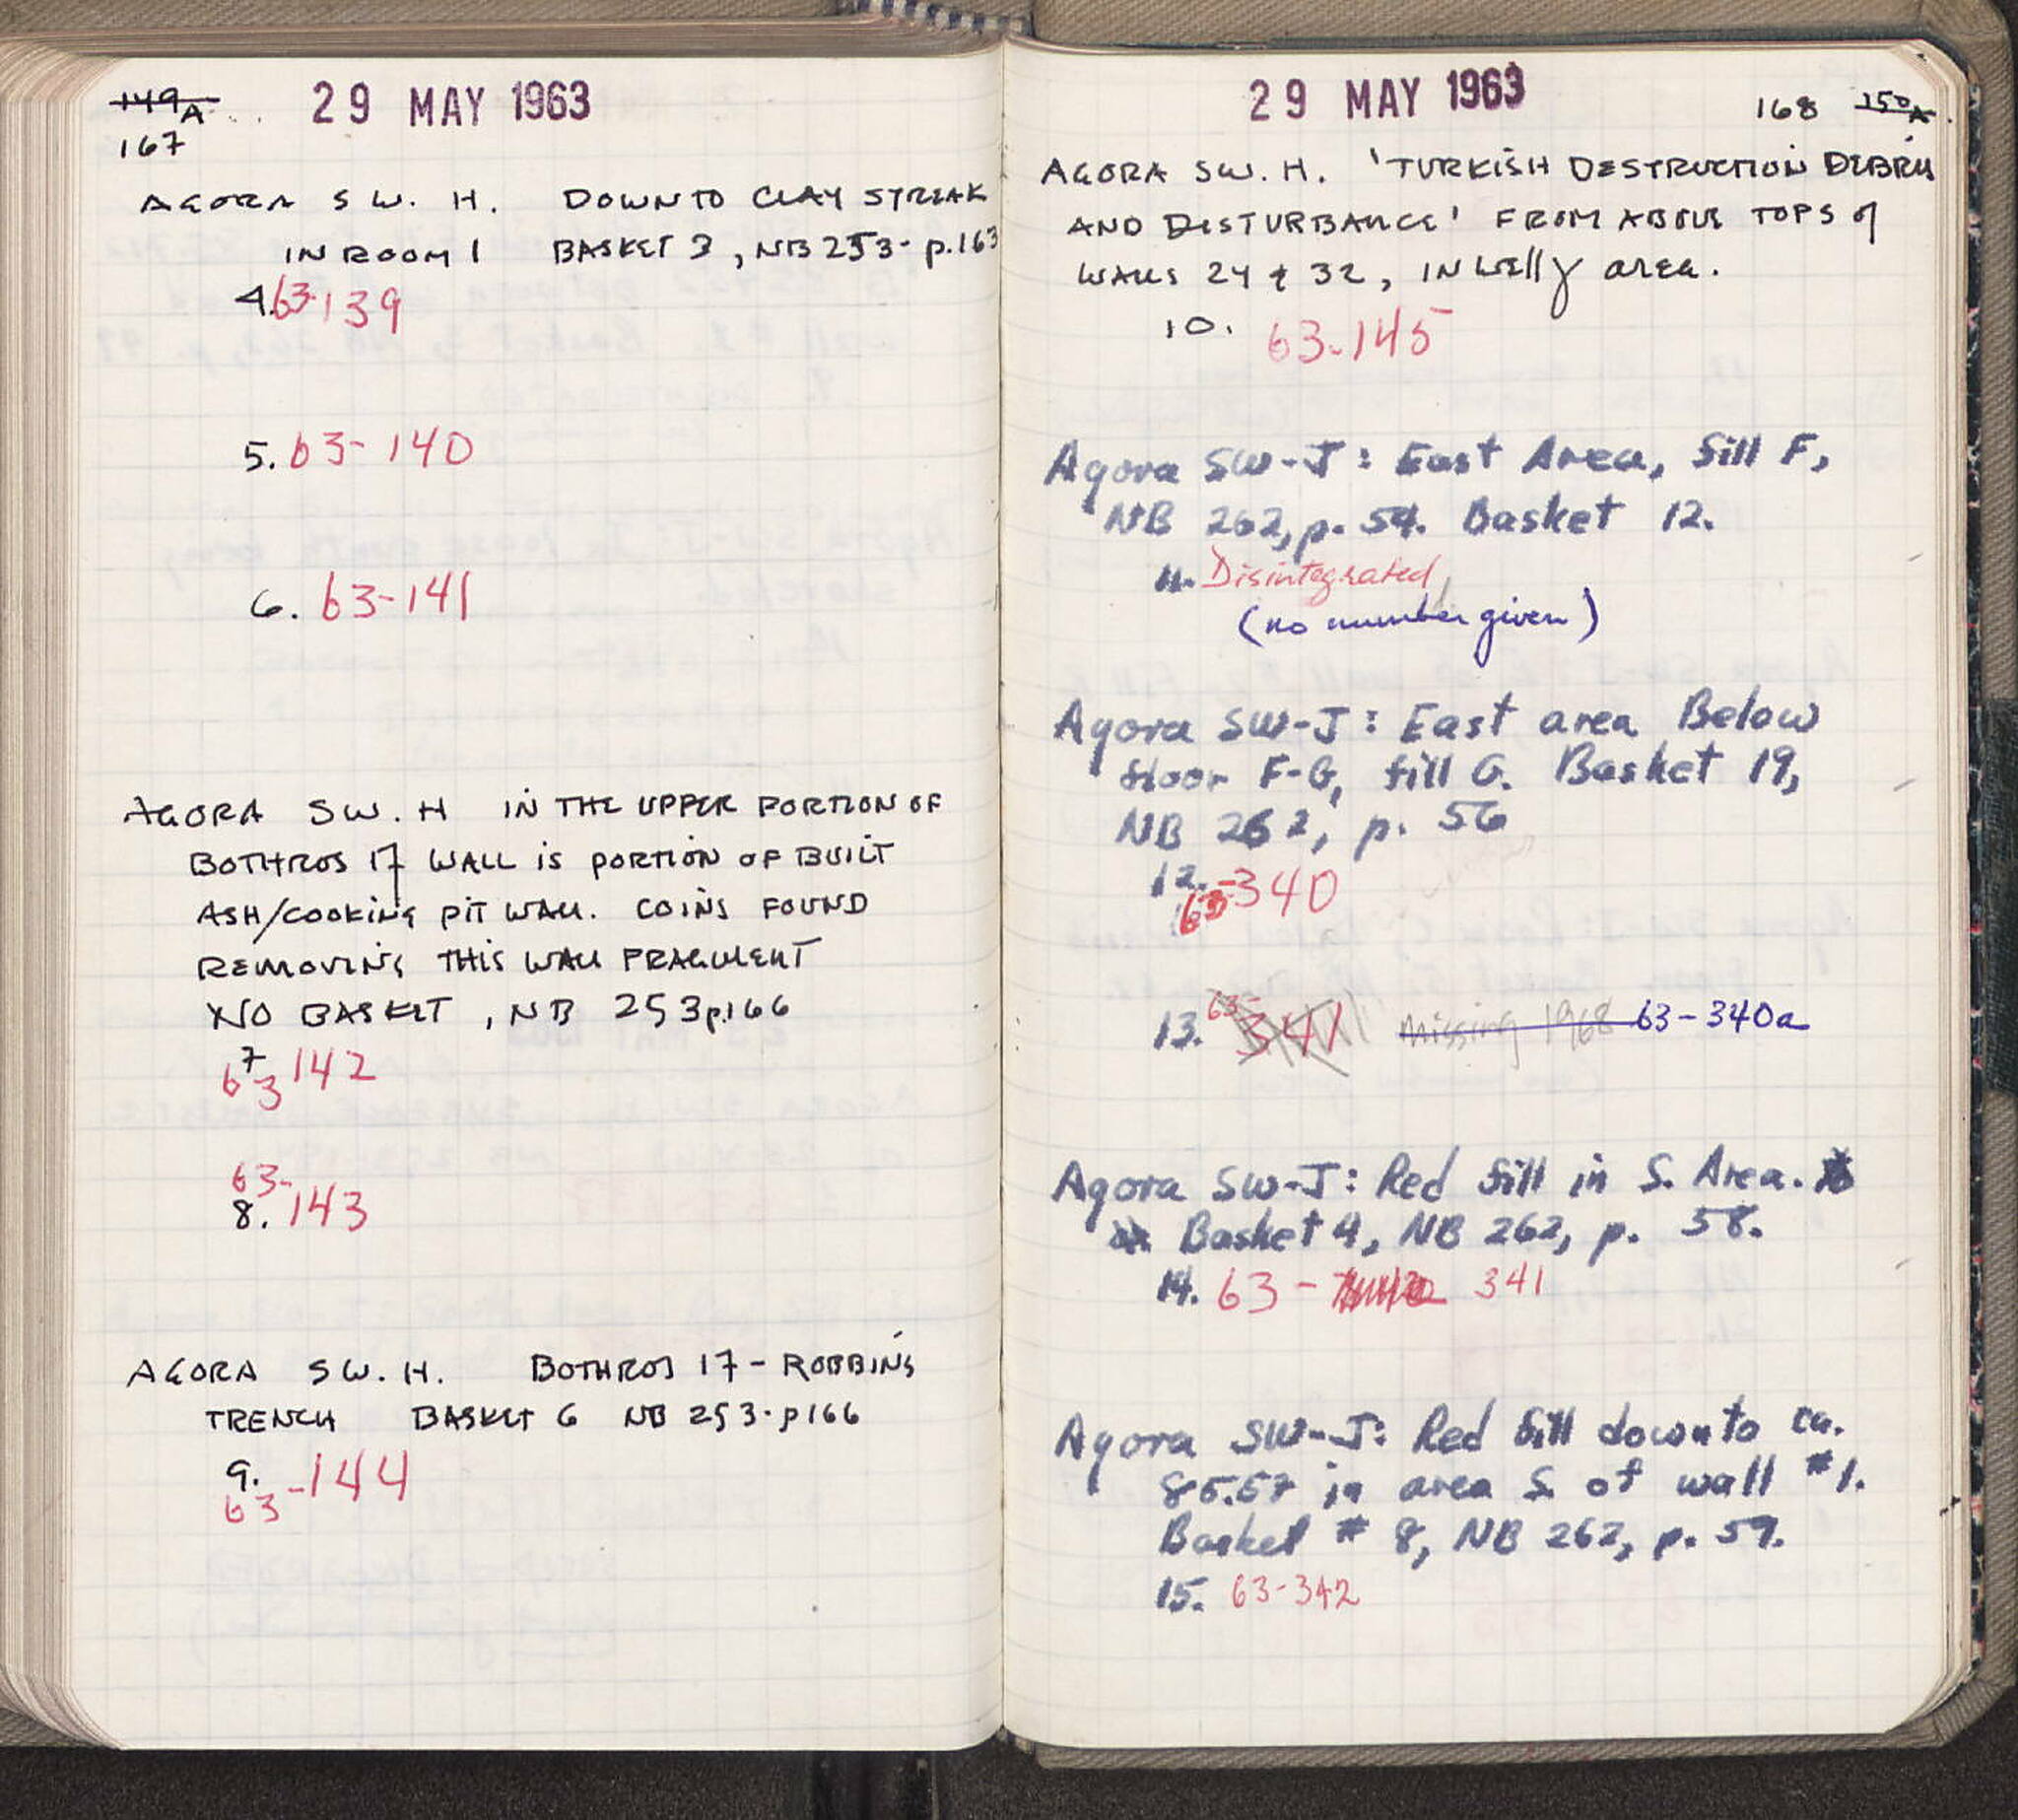 149A
29 MAY 1963
167
AGORA SW. H. DOWN TO CLAY STREAK
IN ROOM 1 BASKET 3, NB 253- p.163
4. 63-139
5. 63-140
6. 63-141
AGORA SW. H IN THE UPPER PORTION OF
BOTHROS 17 WALL IS PORTION OF BUILT
ASH/COOKING PIT WALL. COINS FOUND
REMOVING THIS WALL FRAGMENT
NO BASKET, NB 253 p.166
7
63 142
63-
8. 143
AGORA SW. H. BOTHROS 17 - ROBBING
TRENCH BASKET 6 NB 253. p166
9. -144
63
29 MAY 1963
168 150A
AGORA SW. H. 'TURKISH DESTRUCTION DEBRIS
AND DISTURBANCE' FROM ABOVE TOPS of
WALLS 24 & 32, IN Welly area.
10. 63-145
Agora SW-J: East Area, fill F,
NB 262, p. 54. Basket 12.
11. Disintegrated
(no number given)
Agora SW-J: East area Below
floor F-G, fill G. Basket 19,
NB 262, p. 56
12. -340
63
13. 63-341 Missing 1968 63-340a
Agora SW-J: Red fill in S. Area.
Basket 4, NB 262, p. 58.
14. 63- 341
Agora SW-J: Red fill down to ca.
85.57 in area S. of wall #1.
Basket # 8, NB 262, p. 59.
15. 63-342